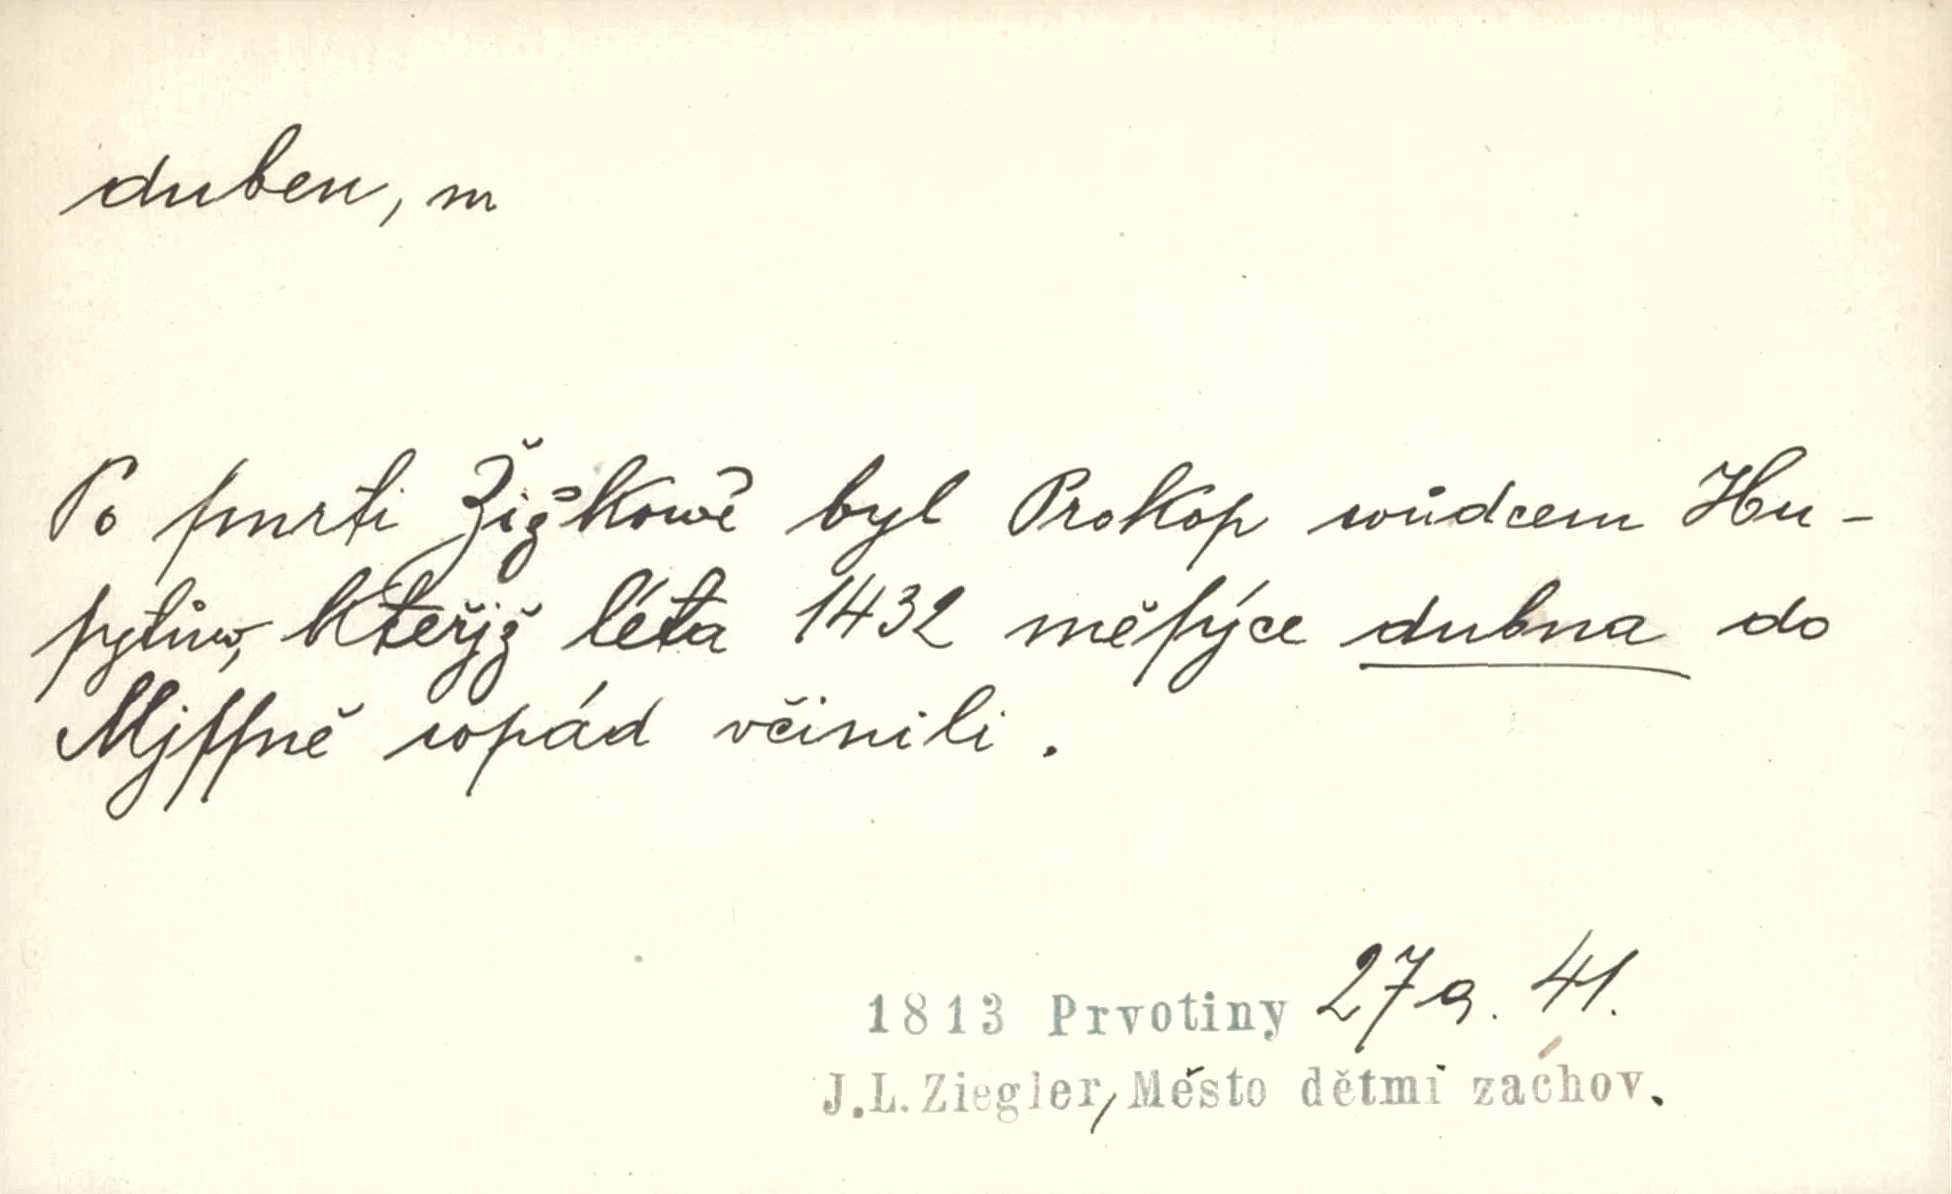 duben, m
Po ſmrti Žižkowě byl Prokop wůdcem Hu-
ſytůw, kteřjž léta 1432 měſýce dubna do
Mjſſně wpád včinili.
1813 Prvotiny 27a. 41.
J.L.Ziegler, Město dětmi zachov.